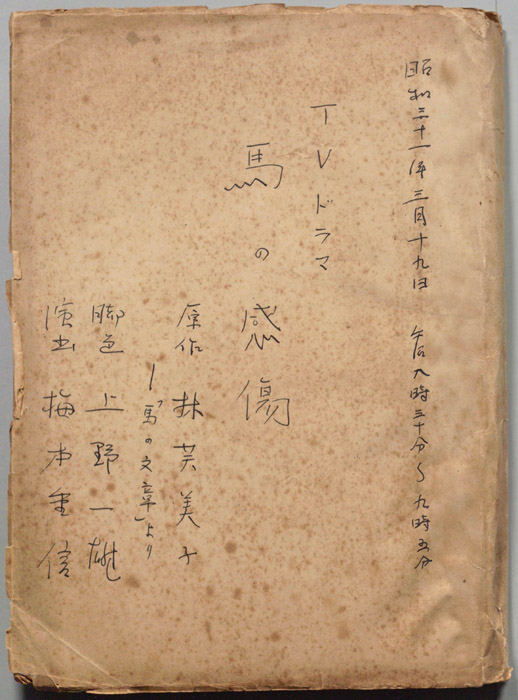 昭和三十一年三月十九日 午后八時三十分〜九時五分
TVドラマ
馬の感傷
原作 林芙美子
―「馬の文章」より
脚色 上野一雄
演出 梅本重信